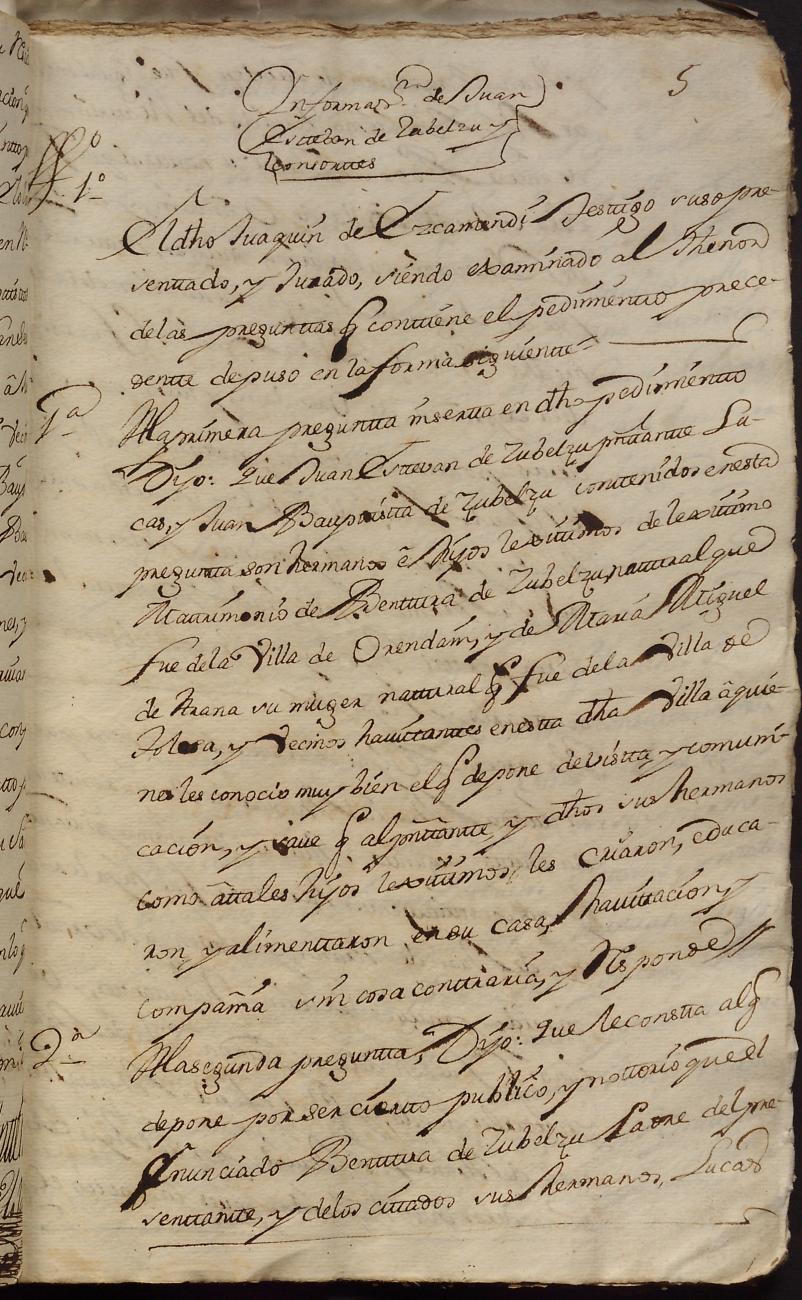 5
Informaz.on de Juan
Estevan de Zubelzu y
consortes
tt.o
1.o
El dho Juaquin de Ezcamendi Testigo suso pre-
senttado, y Jurado, siendo examinado al thenor
delas preguntas q conttiene el pedimientto prece-
dentte depuso en la forma siguientte
1.a
Ala primera preguntta insertta en dho pedimientto
Dijo: Que Juan Esttevan de Zubelzu presittantte Lu-
cas, y Juan Baupttistta de Zubelzu conttenidos en estta
preguntta son hermanos è Hijos lexittimos de lexittimo
Mattrimonio de Benttura de Zubelzu, natturalque
fue dela Villa de Orendain, y de Maria Miguel
de Arana su muger nattural q fue dela Villa de
Tolosa, y Vecinos havittanttes en estta dha Villa à quie-
nes les conocio muy bien el q depone de vistta, y comuni-
cación, y save q al presntantte y dhos sus Hermanos
como à ttales Hijos lexittimos, les criaron, educa-
ron, y alimenttaron en su casa, havittacion, y
compañia sin cosa conttraria, y Responde
2.a
Ala segunda preguntta, Dijo: Que le constta al q
depone por ser cierto publico, y nottorio que el
enunciado Benttura de Zubelzu Padre del pre-
senttantte, y delos cittados sus Hermanos, Lucas